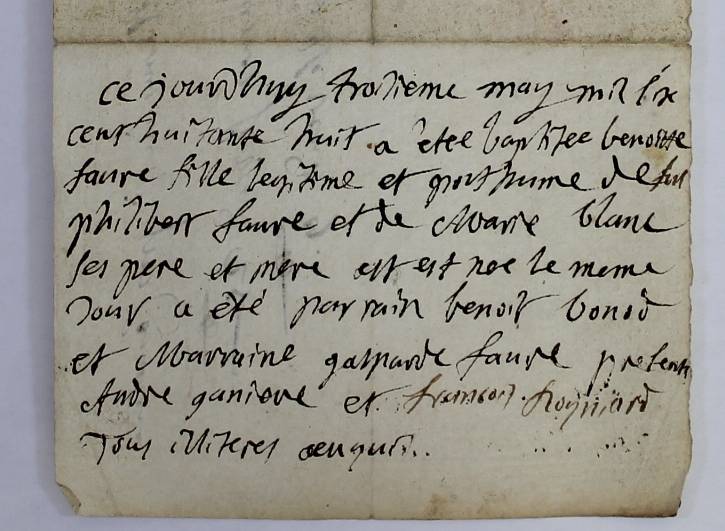 ce jourd'huy troisieme may mil six
cent huitante huit a étée baptisee benoitte
faure fille legitime et posthume de feu
philibert faure et de Marie blanc
ses pere et mere est nee le meme
Jour a été parrain benoit bonod
et Marraine gasparde faure presents
Andre ganiere et francois
Tous illiteres